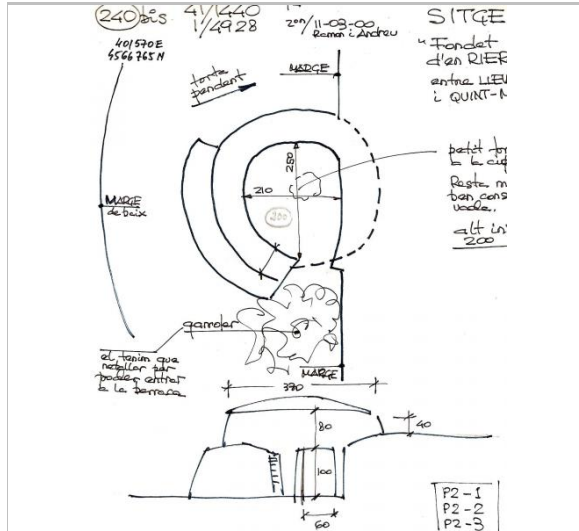 240 bis
41/1440
1/4928
11-03-00
Ramon i Andreu
SITGE
"Fondet
d'en RIER
entre LLEU
i QUINT-M
401570E
4566765N
forta
pendent
MARGE
petit for
a la cú
Resta m
ben cons
vada.
alt in
200
250
210
200
MARGE
de baix
garrofer
el tenim que
netejar per
poder entrar
a la barraca
MARGE
370
80
40
100
60
P2-1
P2-2
P2-3